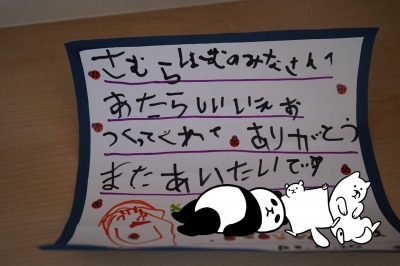 さむらほーむのみなさんへ
あたらしいいえお
つくってくれて ありがとう
またあいたいです